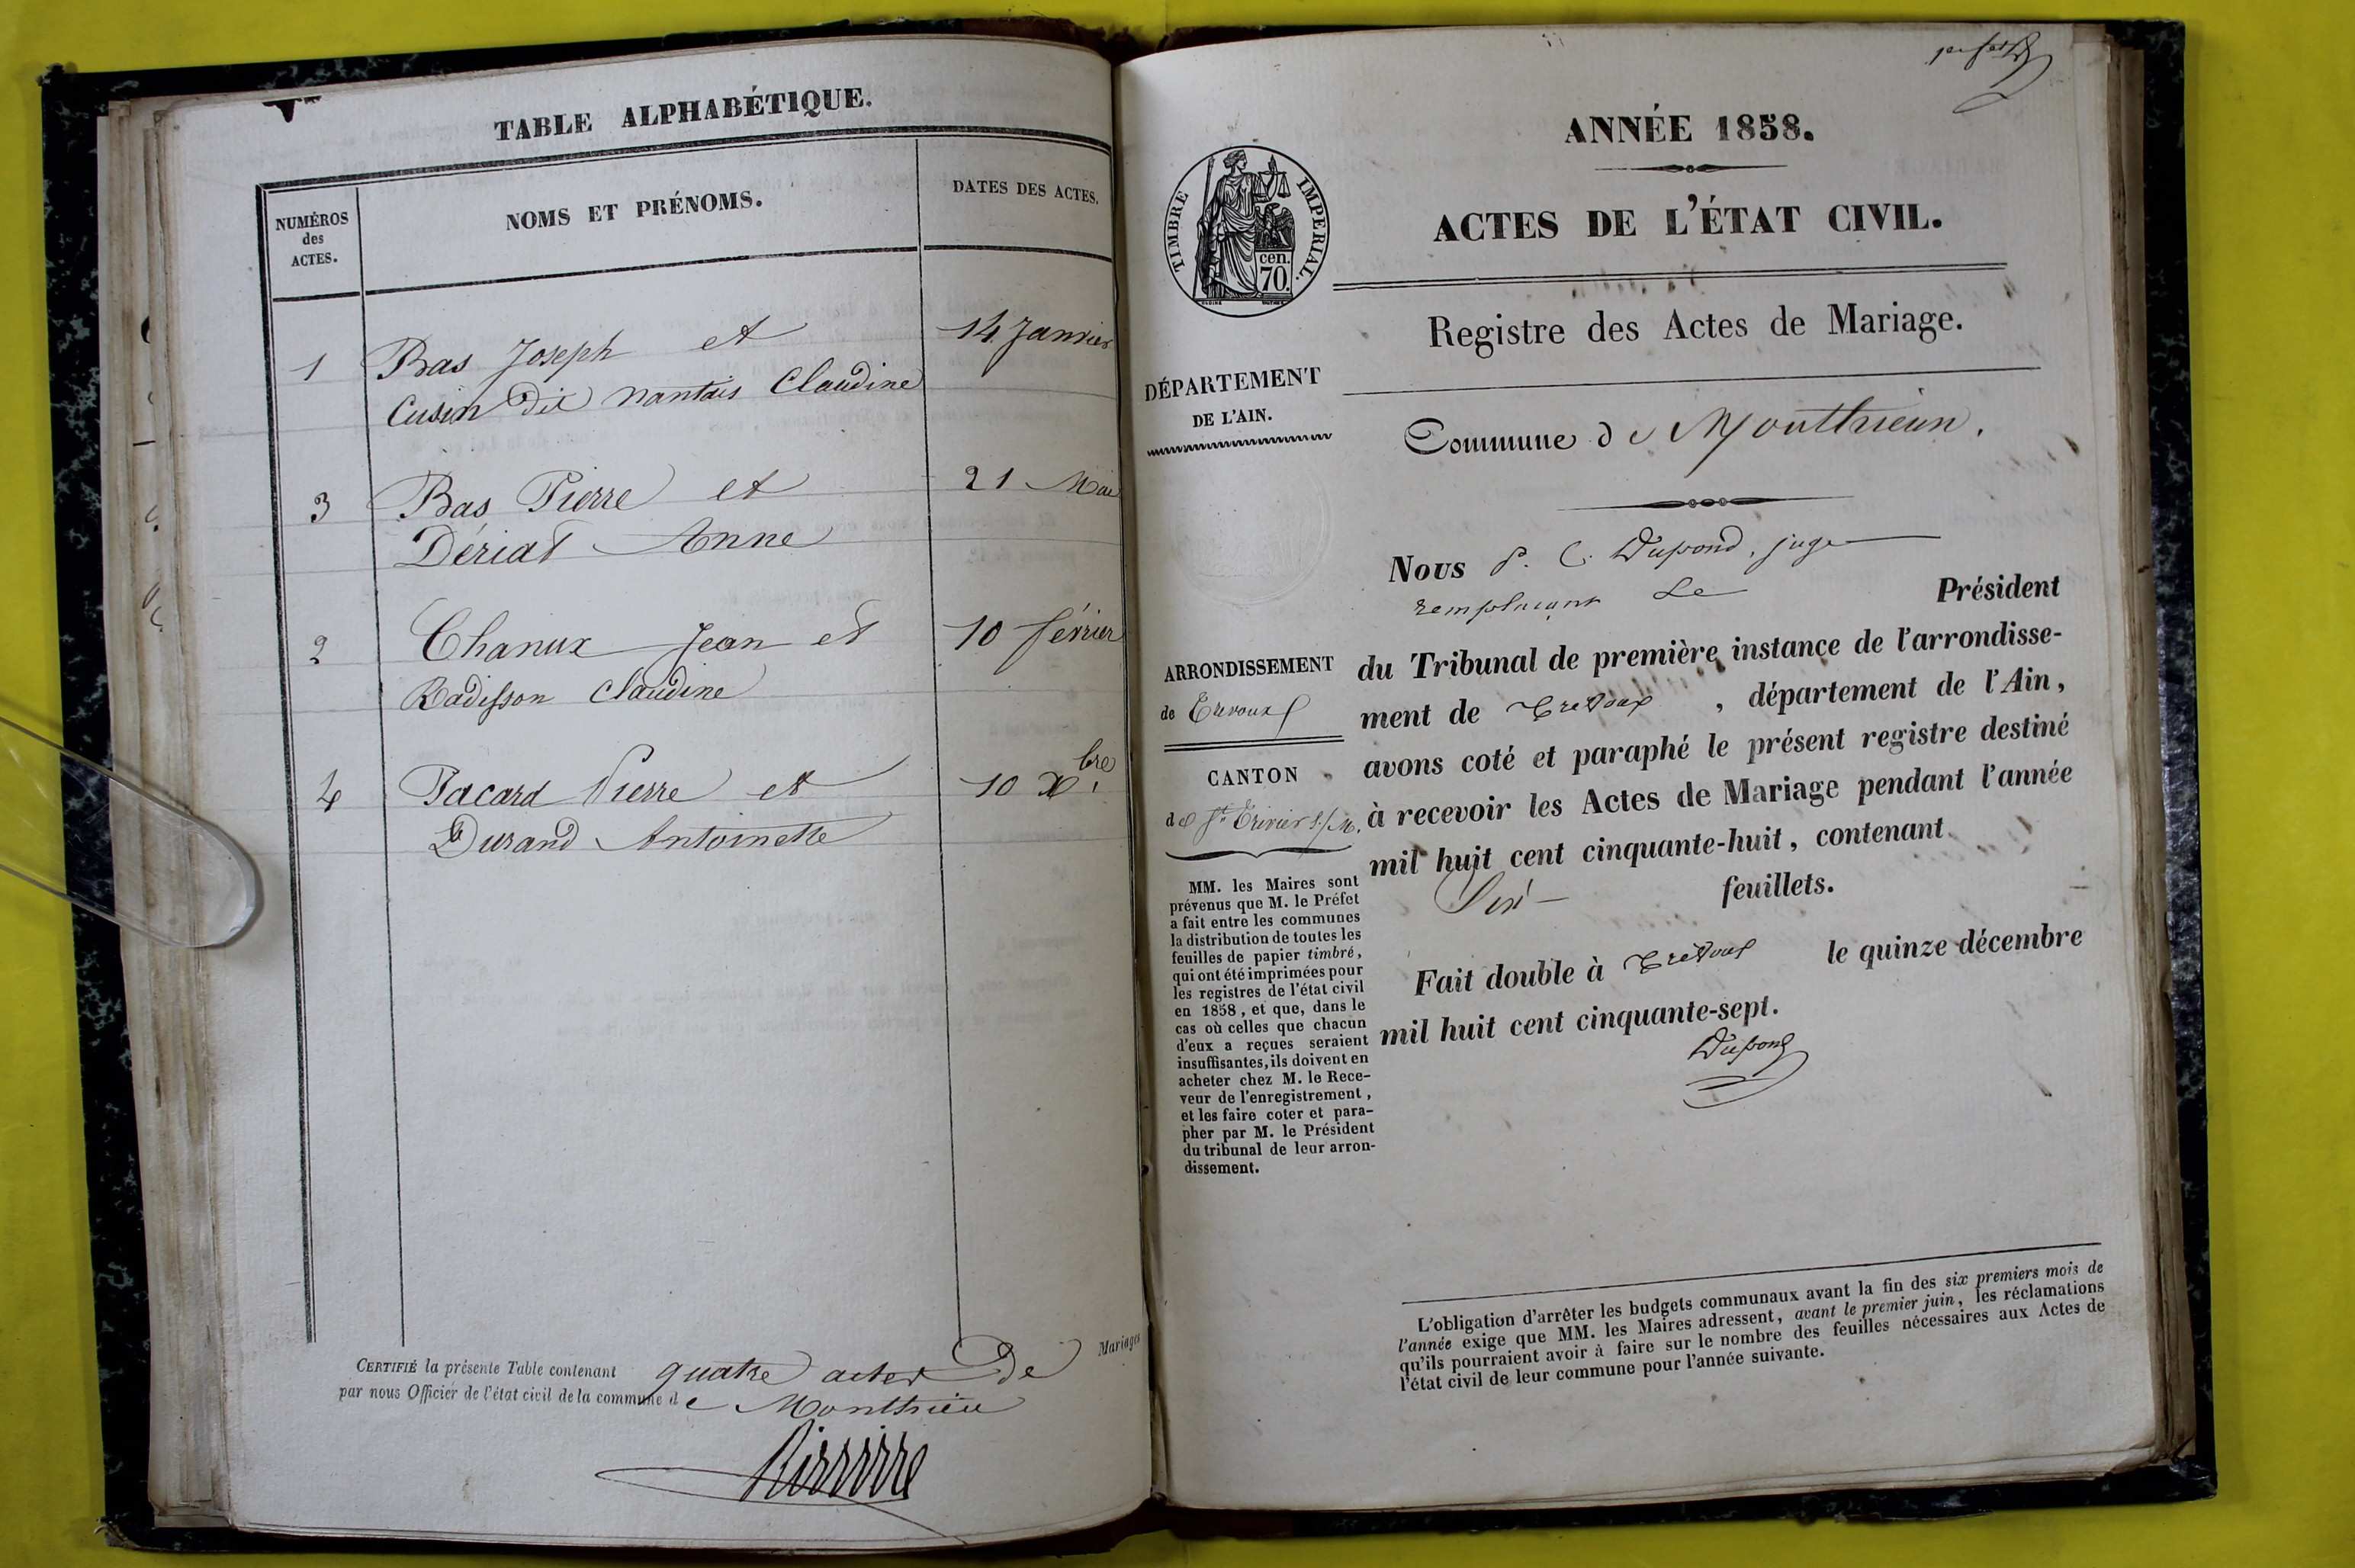 TABLE ALPHABÉTIQUE.
NUMÉROS
des
ACTES.
NOMS ET PRÉNOMS.
DATES DES ACTES.
1 Bas Joseph et 14 Janvier
Cusin dit nantais Claudine
3 Bas Pierre et 21 Mai
Dériat Anne
2 Chanux Jean et 10 février
Radisson Claudine
4 Pacard Pierre et 10 Xbre
Durand Antoinette
CERTIFIÉ la présente Table contenant quatre actes de Mariages
par nous Officier de l'état civil de la commune de Monthieu
ANNÉE 1858.
ACTES DE L'ÉTAT CIVIL.
TIMBRE IMPERIAL.
cen.
70.
Registre des Actes de Mariage.
DÉPARTEMENT
DE L'AIN.
Commune de Monthieux.
Nous P. C. Dupond, juge
remplaçant Le Président
du Tribunal de première instance de l'arrondisse-
ment de Trévoux, département de l'Ain,
avons coté et paraphé le présent registre destiné
à recevoir les Actes de Mariage pendant l'année
mil huit cent cinquante-huit, contenant
Six feuillets.
Fait double à Trévoux le quinze décembre
mil huit cent cinquante-sept.
Dupond
ARRONDISSEMENT
de Trévoux
CANTON
de St Trivier s/M.
MM. les Maires sont
prévenus que M. le Préfet
a fait entre les communes
la distribution de toutes les
feuilles de papier timbré,
qui ont été imprimées pour
les registres de l'état civil
en 1858, et que, dans le
cas où celles que chacun
d'eux a reçues seraient
insuffisantes, ils doivent en
acheter chez M. le Rece-
veur de l'enregistrement,
et les faire coter et para-
pher par M. le Président
du tribunal de leur arron-
dissement.
L'obligation d'arrêter les budgets communaux avant la fin des six premiers mois de
l'année exige que MM. les Maires adressent, avant le premier juin, les réclamations
qu'ils pourraient avoir à faire sur le nombre des feuilles nécessaires aux Actes de
l'état civil de leur commune pour l'année suivante.